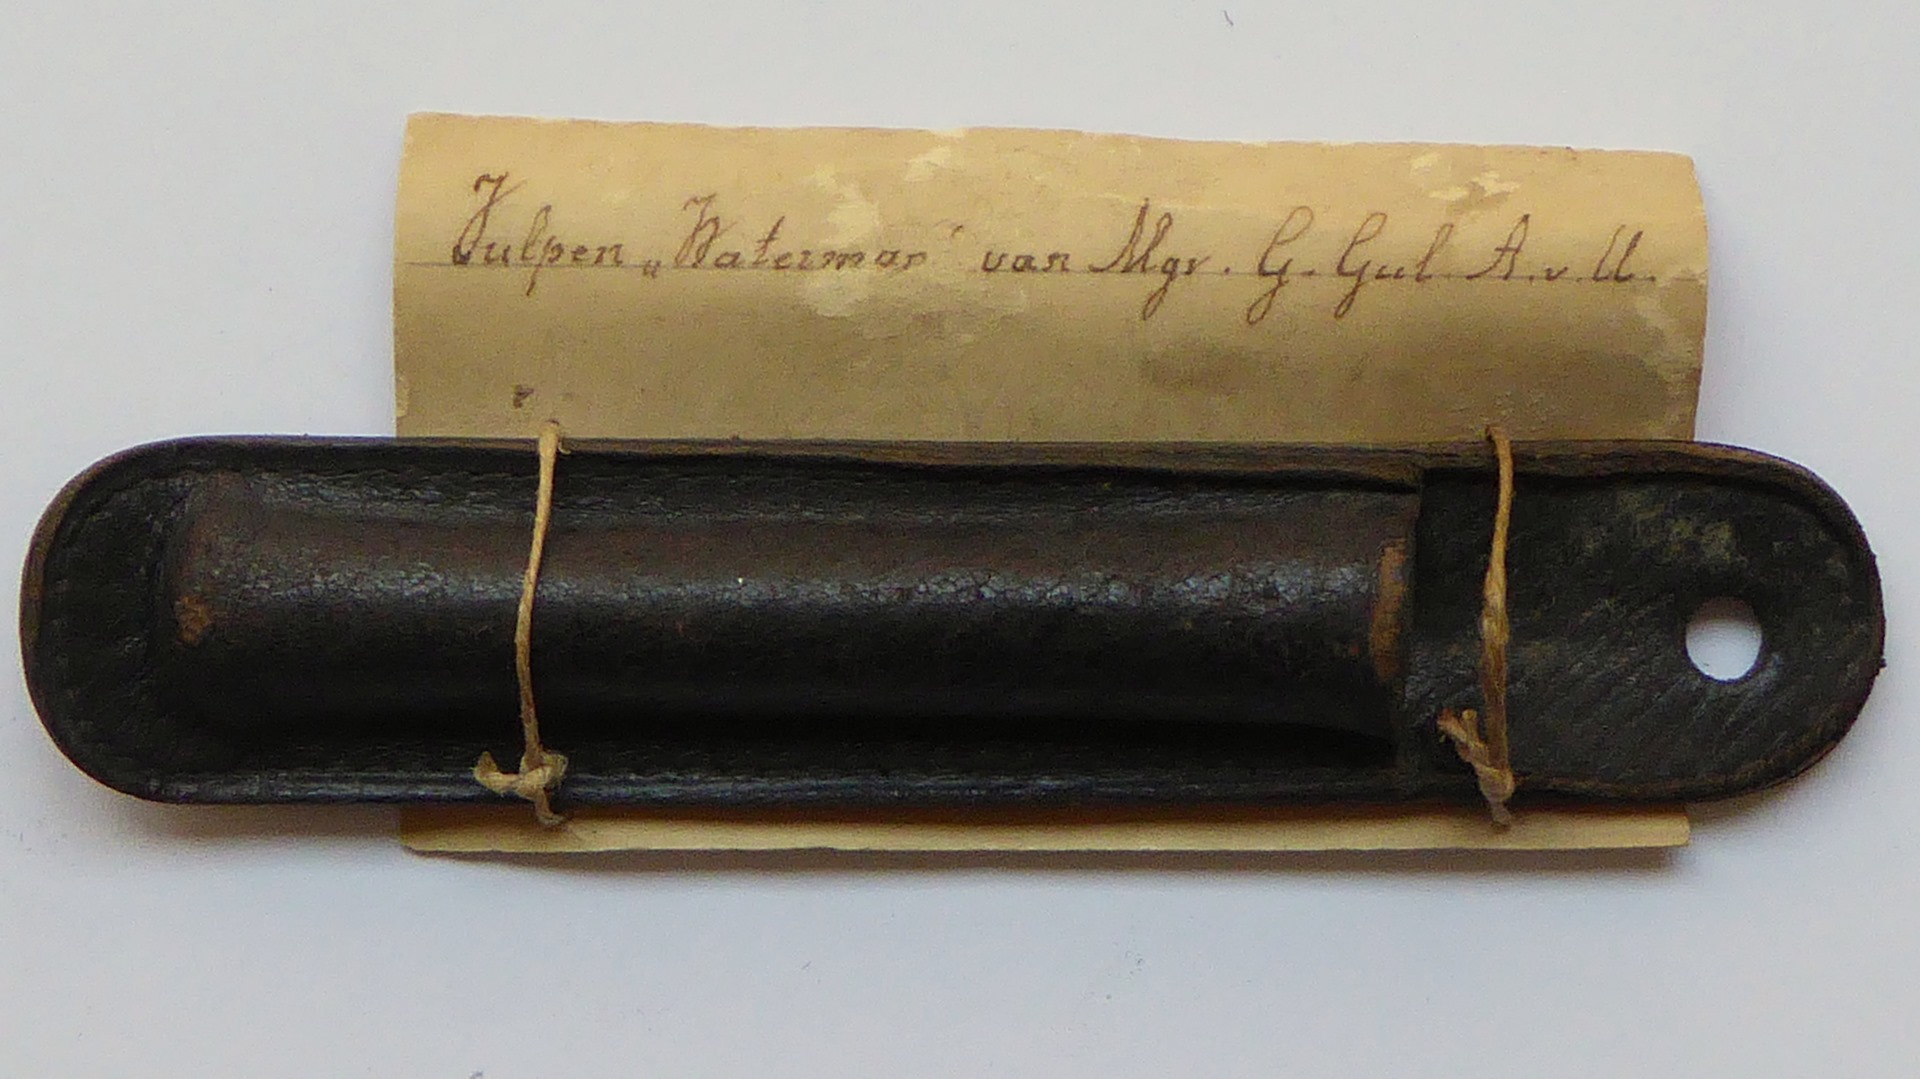 Vulpen „Waterman" van Mgr. G. Gul A.v.U.